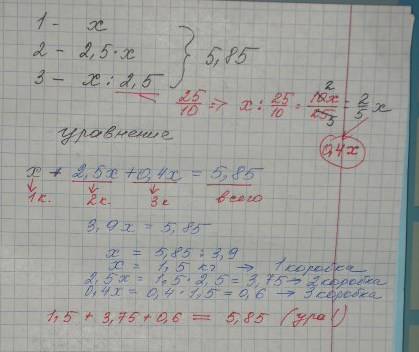 1 - x
2 - 2,5·x } 5,85
3 - x : 2,5
25/10 => x : 25/10 = 10x/25 = 2/5 x
0,4x
уравнение
x + 2,5x + 0,4x = 5,85
1к. 2к. 3к всего
3,9x = 5,85
x = 5,85 : 3,9
x = 1,5 кг → 1 коробка
2,5x = 1,5 · 2,5 = 3,75 → 2 коробка
0,4x = 0,4 · 1,5 = 0,6 → 3 коробка
1,5 + 3,75 + 0,6 = 5,85 (ура!)